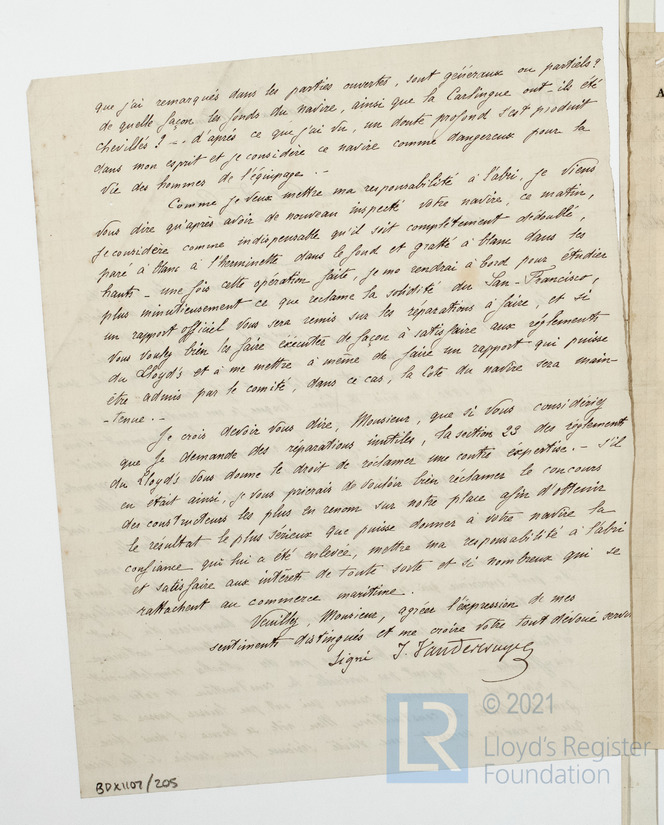 que j'ai remarqués dans les parties ouvertes, sont généraux ou partiels?
de quelle façon les fonds du navire, ainsi que la Carlingue ont-ils été
chevillés? -. d'après ce que j'ai vu, un doute profond s'est produit
dans mon esprit et je considère ce navire comme dangereux pour la
vie des hommes de l'équipage. -
Comme je veux mettre ma responsabilité à l'abri, je viens
vous dire qu'après avoir de nouveau inspecté votre navire, ce matin,
je considère comme indispensable qu'il soit complètement dédoublé,
paré à blanc à l'herminette dans le fond et gratté à blanc dans les
hauts - une fois cette opération faite, je me rendrai à bord pour étudier
plus minutieusement ce que réclame la solidité du San-Francisco,
un rapport officiel vous sera remis sur les réparations à faire, et si
vous voulez bien les faire éxécuter de façon à satisfaire aux règlements
du Lloyd's et à me mettre à même de faire un rapport qui puisse
être admis par le comité, dans ce cas, la Cote du navire sera main-
-tenue. -
Je crois devoir vous dire, Monsieur, que si vous considériez
que je demande des réparations inutiles, la section 23 des règlements
du Lloyd's vous donne le droit de réclamer une contre éxpertise. - S'il
en était ainsi, je vous prierais de vouloir bien réclamer le concours
des constructeurs les plus en renom sur notre place afin d'obtenir
le résultat le plus sérieux que puisse donner à votre navire la
confiance qui lui a été enlevée, mettre ma responsabilité à l'abri
et satisfaire aux intérêts de toute sorte et si nombreux qui se
rattachent au commerce maritime.
Veuillez, Monsieur, agréer l'expression de mes
sentiments distingués et me croire votre tout dévoué
signé J.
BDX1107/205
A
LR
© 2021
Lloyd's Register
Foundation